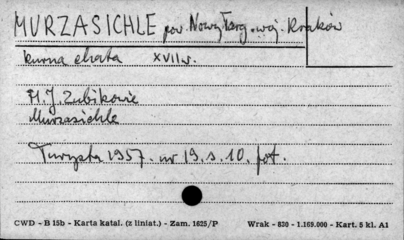 MURZASICHLE pow. Nowy Targ. woj. Kraków
kurna chata XVII w.
M. J. Zubikowie
Murzasichle
Turysta 1957. nr 19. s. 10. fot.
CWD - B 15b - Karta katal. (z liniat.) - Zam. 1625/P Wrak - 830 - 1.169.000 - Kart. 5 kl. A1